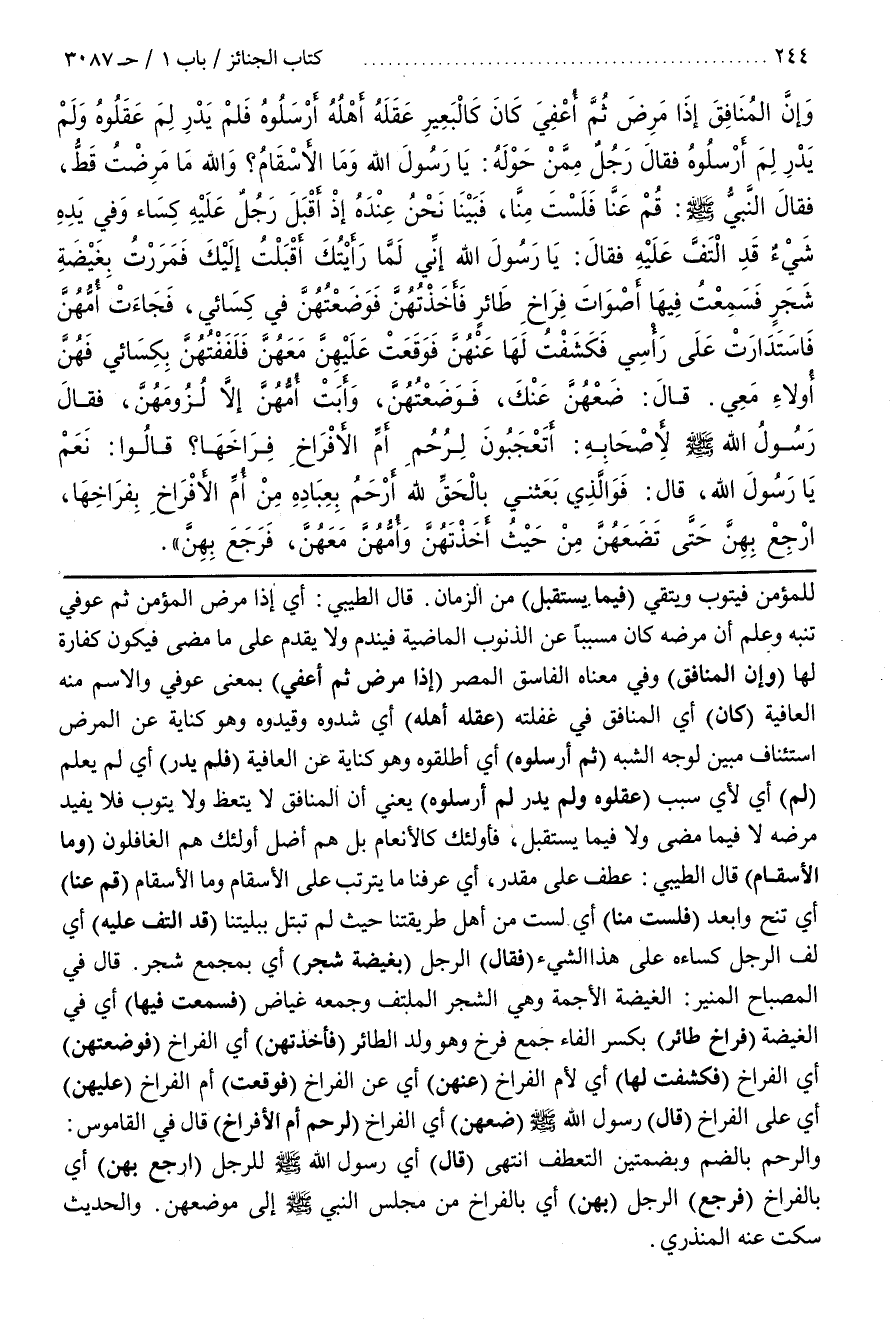 ٢٤٤ ........................................ كتاب الجنائز / باب ١ / حـ ٣٠٨٧
وَإنَّ المُنَافِقَ إذَا مَرِضَ ثُمَّ أُعْفِيَ كَانَ كَالْبَعِيرِ عَقَلَهُ أَهْلُهُ أَرْسَلُوهُ فَلمْ يَدْرِ لِمَ عَقَلُوهُ وَلَمْ
يَدْرِ لِمَ أَرْسلُوهُ فقالَ رَجُلٌ مِمَّنْ حَوْلَهُ: يَا رَسُولَ الله وَمَا الأَسْقَامُ؟ وَالله مَا مَرِضْتُ قَطُّ،
فقالَ النَّبيُّ ﷺ: قُمْ عَنَّا فَلَسْتَ مِنَّا، فَبَيْنَا نَحْنُ عِنْدَهُ إذْ أَقْبَلَ رَجُلٌ عَلَيْهِ كِسَاء وَفي يَدِهِ
شَيْءٌ قَدِ الْتَفَّ عَلَيْهِ فقالَ: يَا رَسُولَ الله إنِّي لَمَّا رَأَيْتُكَ أَقْبَلْتُ إلَيْكَ فَمَرَرْتُ بِغَيْضَةِ
شَجَرٍ فَسَمِعْتُ فِيهَا أَصْوَاتَ فِرَاخِ طَائرٍ فَأَخَذْتُهُنَّ فَوَضَعْتُهُنَّ في كِسَائي، فَجَاءَتْ أُمُّهُنَّ
فَاسَتَدَارَتْ عَلَى رَأْسِي فَكَشَفْتُ لَهَا عَنْهُنَّ فَوَقَعَتْ عَلَيْهِنَّ مَعَهُنَّ فَلَفَفْتُهُنَّ بِكِسَائي فَهُنَّ
أُولاءِ مَعِي. قـالَ: ضَعْهُنَّ عَنْكَ، فَـوَضَعْتُهُنَّ، وَأَبَتْ أُمُّهُنَّ إلَّا لُـزُومَهُنَّ، فقـالَ
رَسُـولُ الله ﷺ لِأَصْحَابِـهِ: أَتَعْجَبُونَ لِـرُحْمِ أُمِّ الأَفْرَاخِ فِـرَاخَهَـا؟ قـالُـوا: نَعَمْ
يَا رَسُولَ الله، قال: فَوَالَّذِي بَعَثَنـي بالْحَقِّ لله أَرْحَمُ بِعِبَادِهِ مِنْ أُمِّ الأَفْرَاخِ بِفِرَاخِهَا،
ارْجِعْ بِهِنَّ حَتَّى تَضَعَهُنَّ مِنْ حَيْثُ أَخَذْتَهُنَّ وَأُمُّهُنَّ مَعَهُنَّ، فَرَجَعَ بِهِنَّ».
للمؤمن فيتوب ويتقي (فيما يستقبل) من الزمان. قال الطيبي: أي إذا مرض المؤمن ثم عوفي
تنبه وعلم أن مرضه كان مسبباً عن الذنوب الماضية فيندم ولا يقدم على ما مضى فيكون كفارة
لها (وإن المنافق) وفي معناه الفاسق المصر (إذا مرض ثم أعفي) بمعنى عوفي والاسم منه
العافية (كان) أي المنافق في غفلته (عقله أهله) أي شدوه وقيدوه وهو كناية عن المرض
استئناف مبين لوجه الشبه (ثم أرسلوه) أي أطلقوه وهو كناية عن العافية (فلم يدر) أي لم يعلم
(لم) أي لأي سبب (عقلوه ولم يدر لم أرسلوه) يعني أن المنافق لا يتعظ ولا يتوب فلا يفيد
مرضه لا فيما مضى ولا فيما يستقبل، فأولئك كالأنعام بل هم أضل أولئك هم الغافلون (وما
الأسقـام) قال الطيبي: عطف على مقدر، أي عرفنا ما يترتب على الأسقام وما الأسقام (قم عنا)
أي تنح وابعد (فلست منا) أي لست من أهل طريقتنا حيث لم تبتل ببليتنا (قد التف عليه) أي
لف الرجل كساءه على هذا الشيء (فقال) الرجل (بغيضة شجر) أي بمجمع شجر. قال في
المصباح المنير: الغيضة الأجمة وهي الشجر الملتف وجمعه غياض (فسمعت فيها) أي في
الغيضة (فراخ طائر) بكسر الفاء جمع فرخ وهو ولد الطائر (فأخذتهن) أي الفراخ (فوضعتهن)
أي الفراخ (فكشفت لها) أي لأم الفراخ (عنهن) أي عن الفراخ (فوقعت) أم الفراخ (عليهن)
أي على الفراخ (قال) رسول الله ﷺ (ضعهن) أي الفراخ (لرحم أم الأفراخ) قال في القاموس:
والرحم بالضم وبضمتين التعطف انتهى (قال) أي رسول الله ﷺ للرجل (ارجع بهن) أي
بالفراخ (فرجع) الرجل (بهن) أي بالفراخ من مجلس النبي ﷺ إلى موضعهن. والحديث
سكت عنه المنذري.